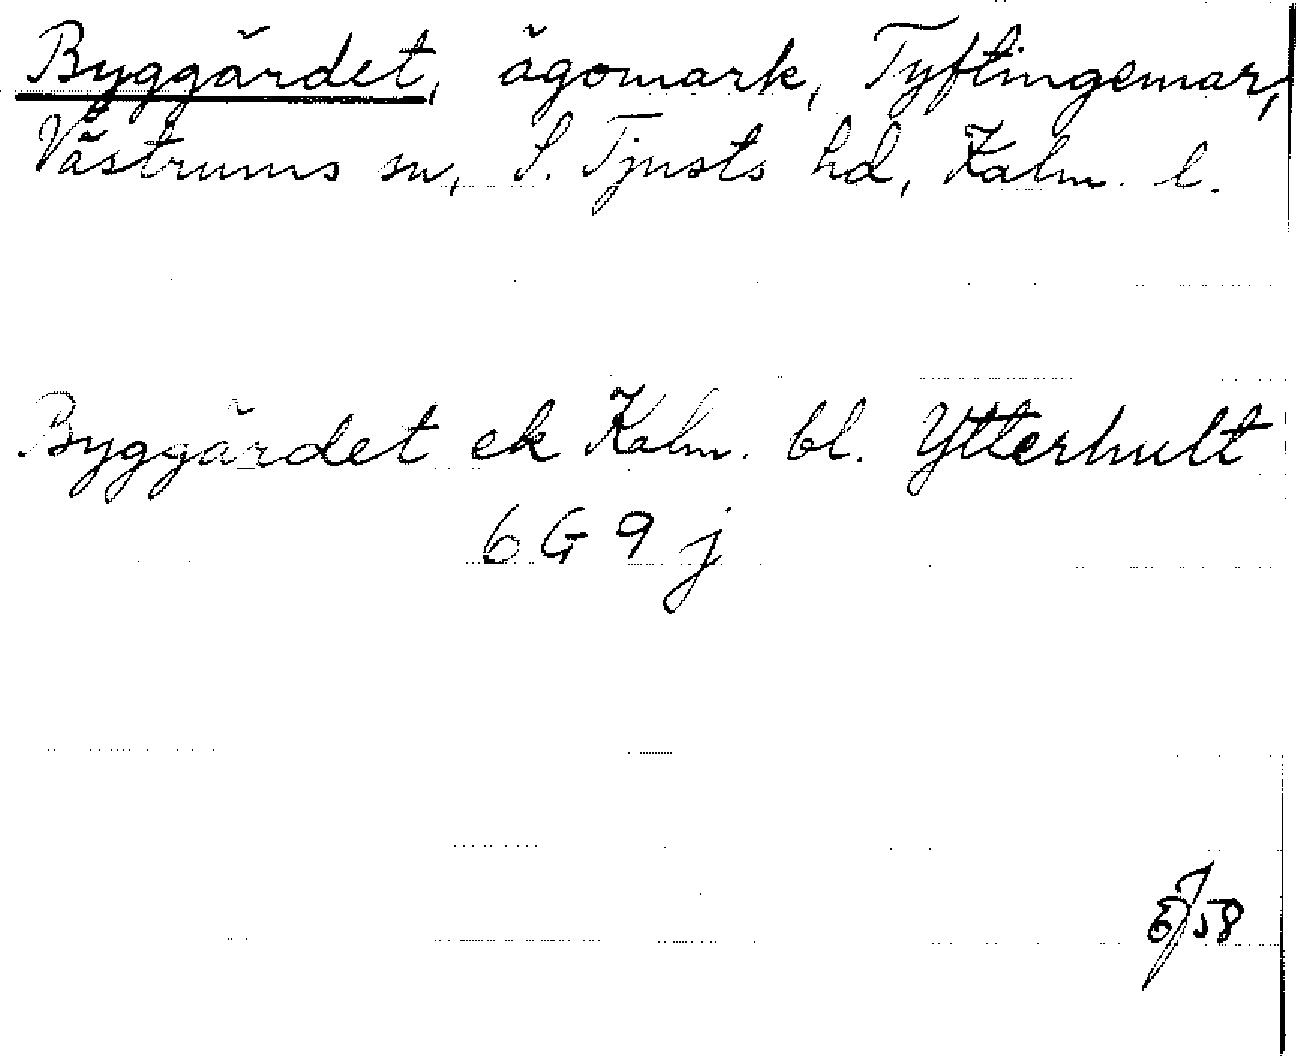 Byggärdet, ägomark, Tyftingemar,
Västrums sn, S. Tjusts hd, Kalm. l.
Byggärdet ek Kalm. bl. Ytterhult
6 G 9 j